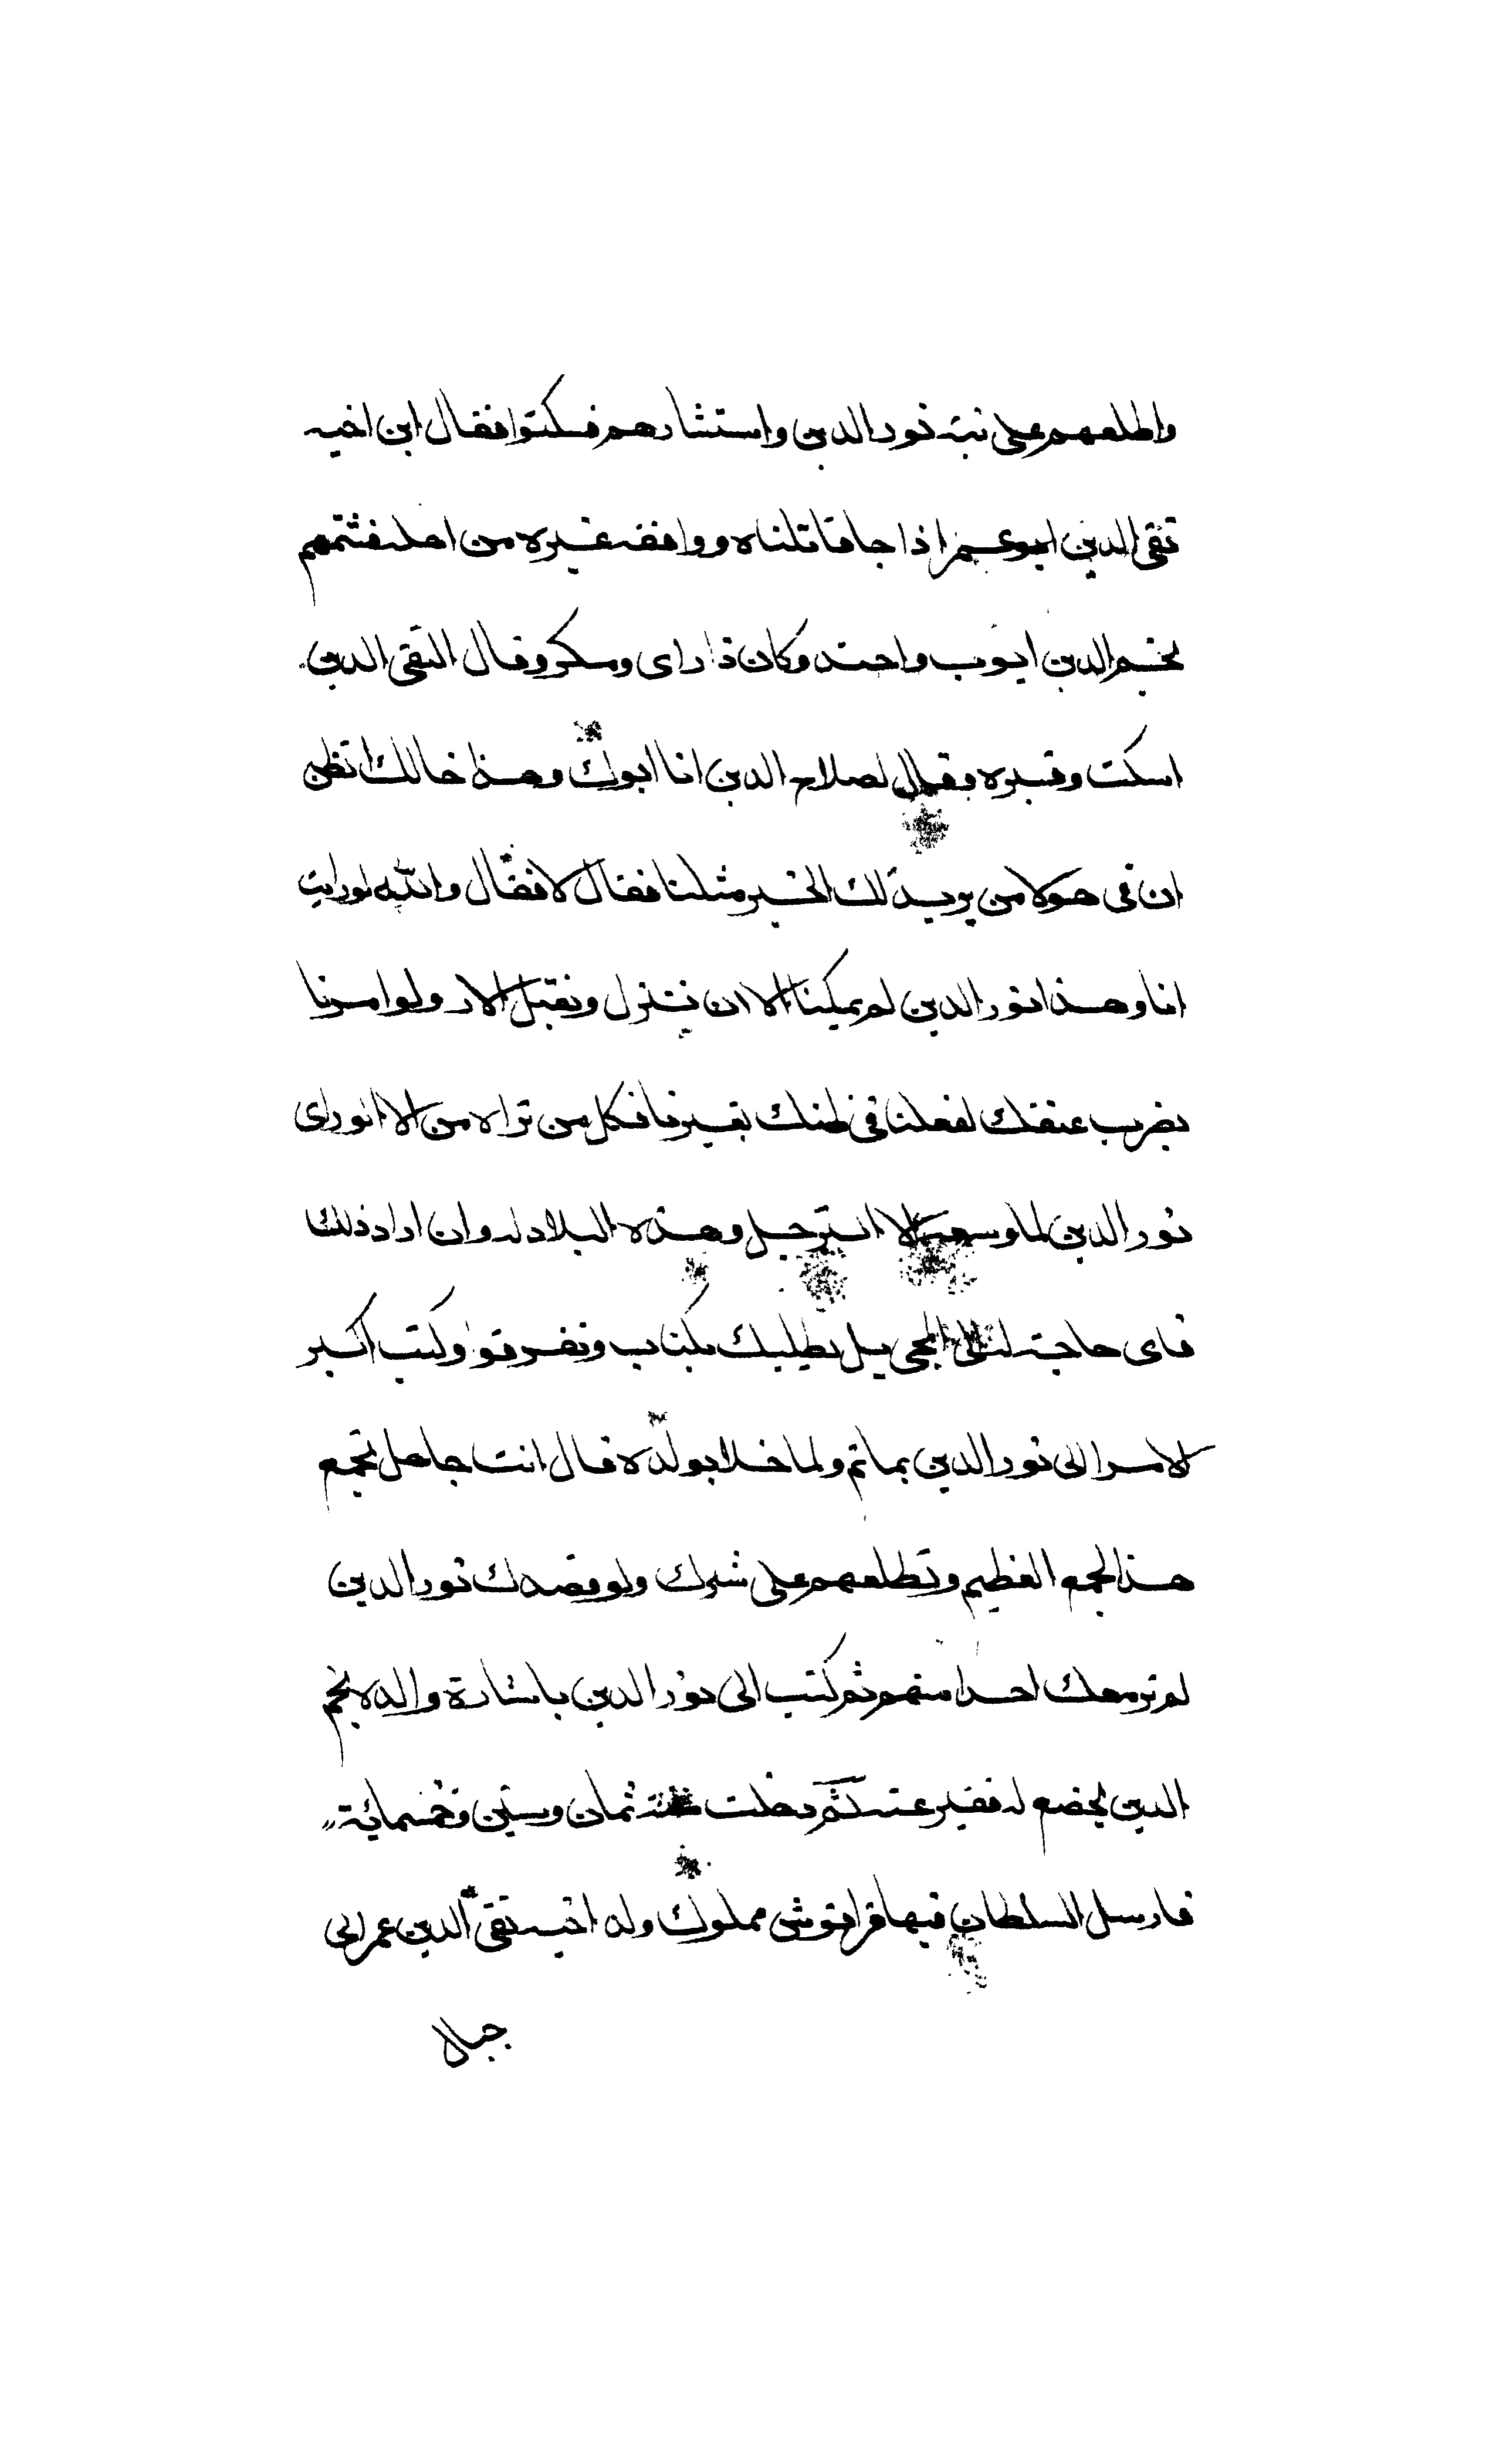 واطلعهم على نية نور الدين واستشارهم فسكتوا فقال ابن اخيه
تقى الدين ابو عمر اذا جا قاتلناه ووافقه غيره من اهله فشتمهم
نجم الدين ايوب واحتد وكان ذا راى ومكر وقال التقى الدين
اسكت وقبره وقال لصلاح الدين انا ابوك وهذا خالك اتظن
ان فى هولا من يريد لك الخير مثلنا فقال لا فقال والله لو رايت
انا وهذا نور الدين لم يمكنا الا ان ننزل ونقبل الار ولو امرنا
بضرب عنقك لفعلنا فى ظنك بغيرنا فكل من تراه من الا لو راى
نور الدين لما وسعه الا الترجل وهذه البلاد له وان اراد ذلك
فاى حاجة له الى المجى بل يطلبك بكتاب وتفرقوا وكتب اكبر
الامرا الى نور الدين بما تم ولما خلا بولده قال انت جاهل تجمع
هذا الجمع العظيم وتطلعهم على سرك ولو قصدك نور الدين
لم تر معك احدا منهم ثم كتب الى نور الدين باشارة والده نجم
الدين يخضع له ففتر عنه ثم دخلت سنة ثمان وستين وخمسمائة
فارسل السلطان فيها قراقوش مملوك ولد اخيه تقى الدين عمر الى
جبال